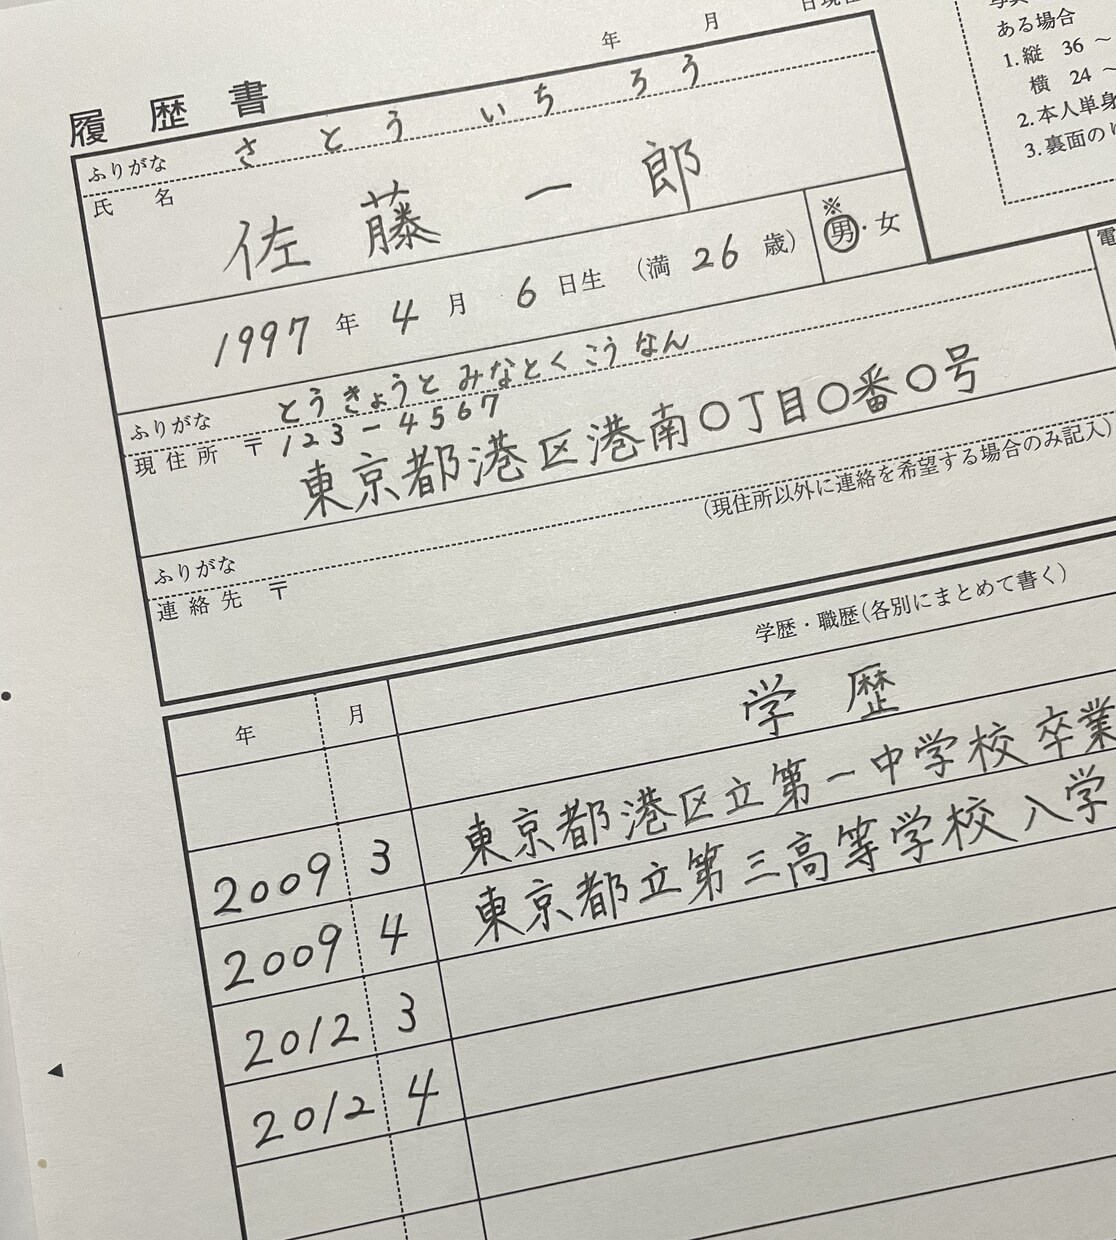 年 月 日現在
履歴書
ふりがな さとう いちろう
氏名 佐藤 一郎
1997年 4月 6日生 (満 26 歳) ※ 男・女
ふりがな とうきょうと みなとく こうなん
現住所 〒 123-4567
東京都港区港南〇丁目〇番〇号
電
ふりがな (現住所以外に連絡を希望する場合のみ記入)
連絡先 〒
ある場合
1. 縦 36 ~
横 24 ~
2. 本人単身
3. 裏面の
年 月 学歴・職歴(各別にまとめて書く)
学歴
2009 3 東京都港区立第一中学校 卒業
2009 4 東京都立第三高等学校 入学
2012 3
2012 4